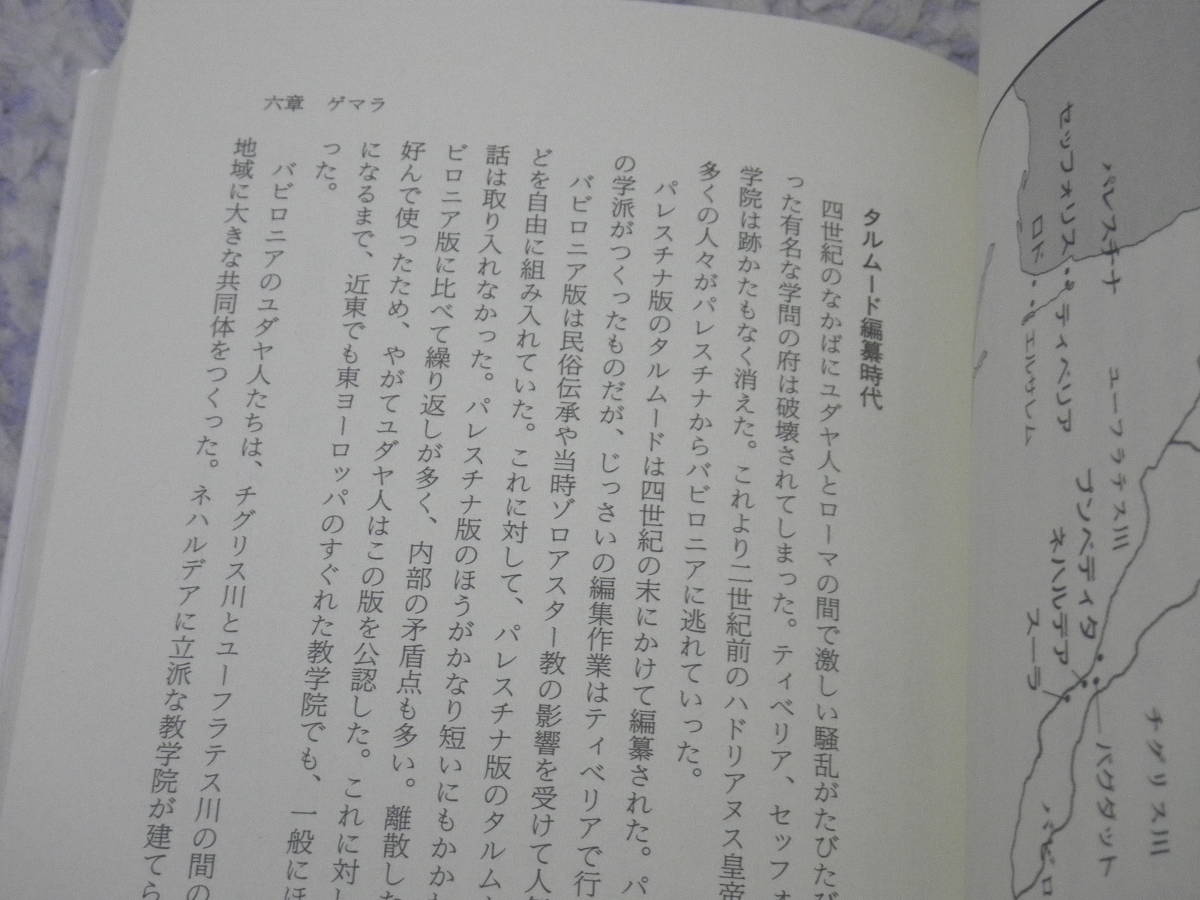 六章　ゲマラ
タルムード編纂時代
四世紀のなかばにユダヤ人とローマの間で激しい騒乱がたびたび
った有名な学問の府は破壊されてしまった。ティベリア、セッフォ
学院は跡かたもなく消えた。これより二世紀前のハドリアヌス皇帝
多くの人々がパレスチナからバビロニアに逃れていった。
パレスチナ版のタルムードは四世紀の末にかけて編纂された。パ
の学派がつくったものだが、じっさいの編集作業はティベリアで行
バビロニア版は民俗伝承や当時ゾロアスター教の影響を受けて人気
どを自由に組み入れていた。これに対して、パレスチナ版のタルム
話は取り入れなかった。パレスチナ版のほうがかなり短いにもかか
ビロニア版に比べて繰り返しが多く、内部の矛盾点も多い。離散した
好んで使ったため、やがてユダヤ人はこの版を公認した。これに対し
になるまで、近東でも東ヨーロッパのすぐれた教学院でも、一般にほ
った。
バビロニアのユダヤ人たちは、チグリス川とユーフラテス川の間の
地域に大きな共同体をつくった。ネハルデアに立派な教学院が建てら
パレスチナ
セッフォリス
ロド
ティベリア
エルサレム
ユーフラテス川
プンベディタ
ネハルデア
スーラ
バグダット
チグリス川
バビロ